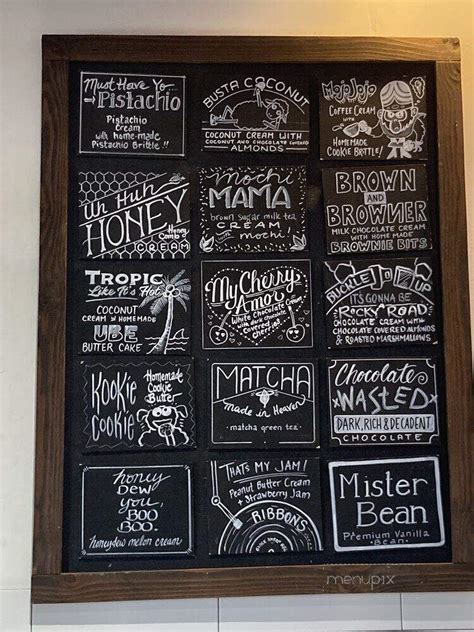 Must Have Yo...
Pistachio
Pistachio
Cream
with home-made
Pistachio Brittle!!
BUSTA COCONUT
COCONUT CREAM WITH
COCONUT AND CHOCOLATE COVERED
ALMONDS
MojoJojo
COFFEE CREAM
WITH
HOMEMADE
COOKIE BRITTLE!
Uh Huh
HONEY
Honey
Comb
CREAM
Mochi
MAMA
brown sugar milk tea
CREAM
& mochi!
BROWN
AND
BROWNER
MILK CHOCOLATE CREAM
WITH HOME MADE
BROWNIE BITS
TROPIC
Like It's Hot
COCONUT
CREAM W HOMEMADE
UBE
BUTTER CAKE
My Cherry
Amor
White Chocolate Cream
with dark chocolate
covered
cherries
BUCKLE UP
IT'S GONNA BE
ROCKY ROAD
CHOCOLATE CREAM WITH
CHOCOLATE COVERED ALMONDS
& ROASTED MARSHMALLOWS
Kookie
Cookie
Homemade
Cookie
Butter
MATCHA
made in Heaven
matcha green tea
Chocolate
WASTED
DARK, RICH & DECADENT
CHOCOLATE
honey
DEW
you
BOO
BOO.
honeydew melon cream
THATS MY JAM!
Peanut Butter Cream
+ Strawberry Jam
RIBBONS
Mister
Bean
Premium Vanilla
Bean
menupix